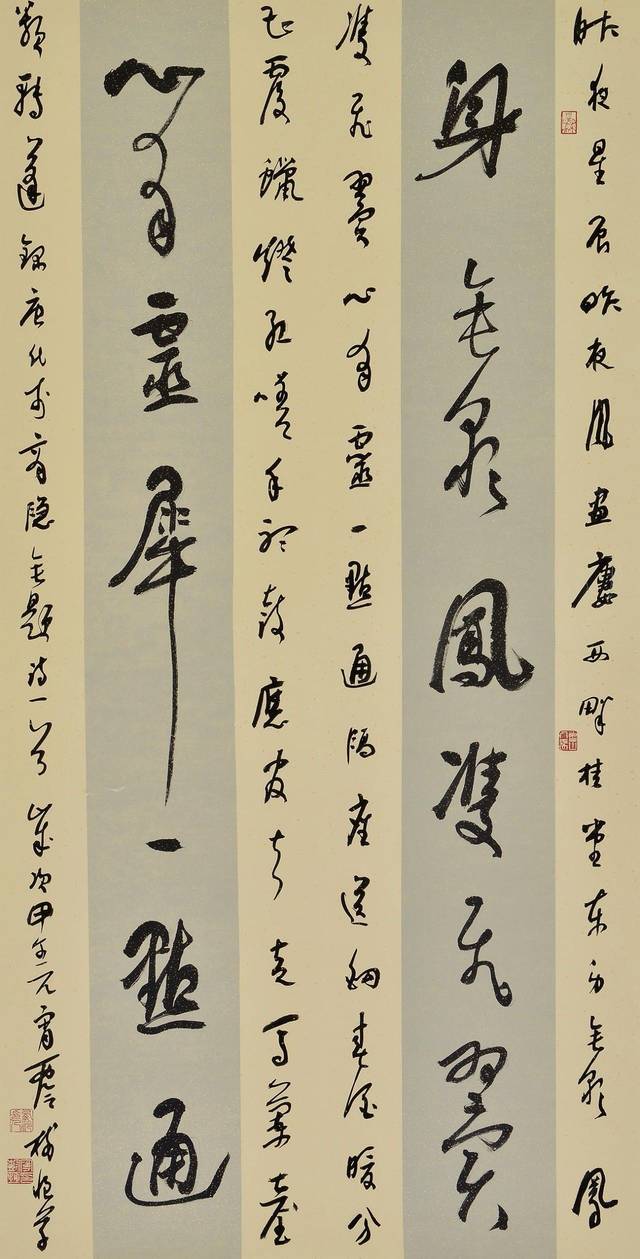 昨夜星辰昨夜風畫廔西畔桂堂東身無彩鳳
身無彩鳳雙飛翼
雙飛翼心有靈一點通隔座送鉤春酒暖分
曹覆蠟燈紅嗟余聽鼓應官去走馬蘭臺
心有靈犀一點通
類轉蓬錄唐代李商隱無題詩一首歲次甲午元宵